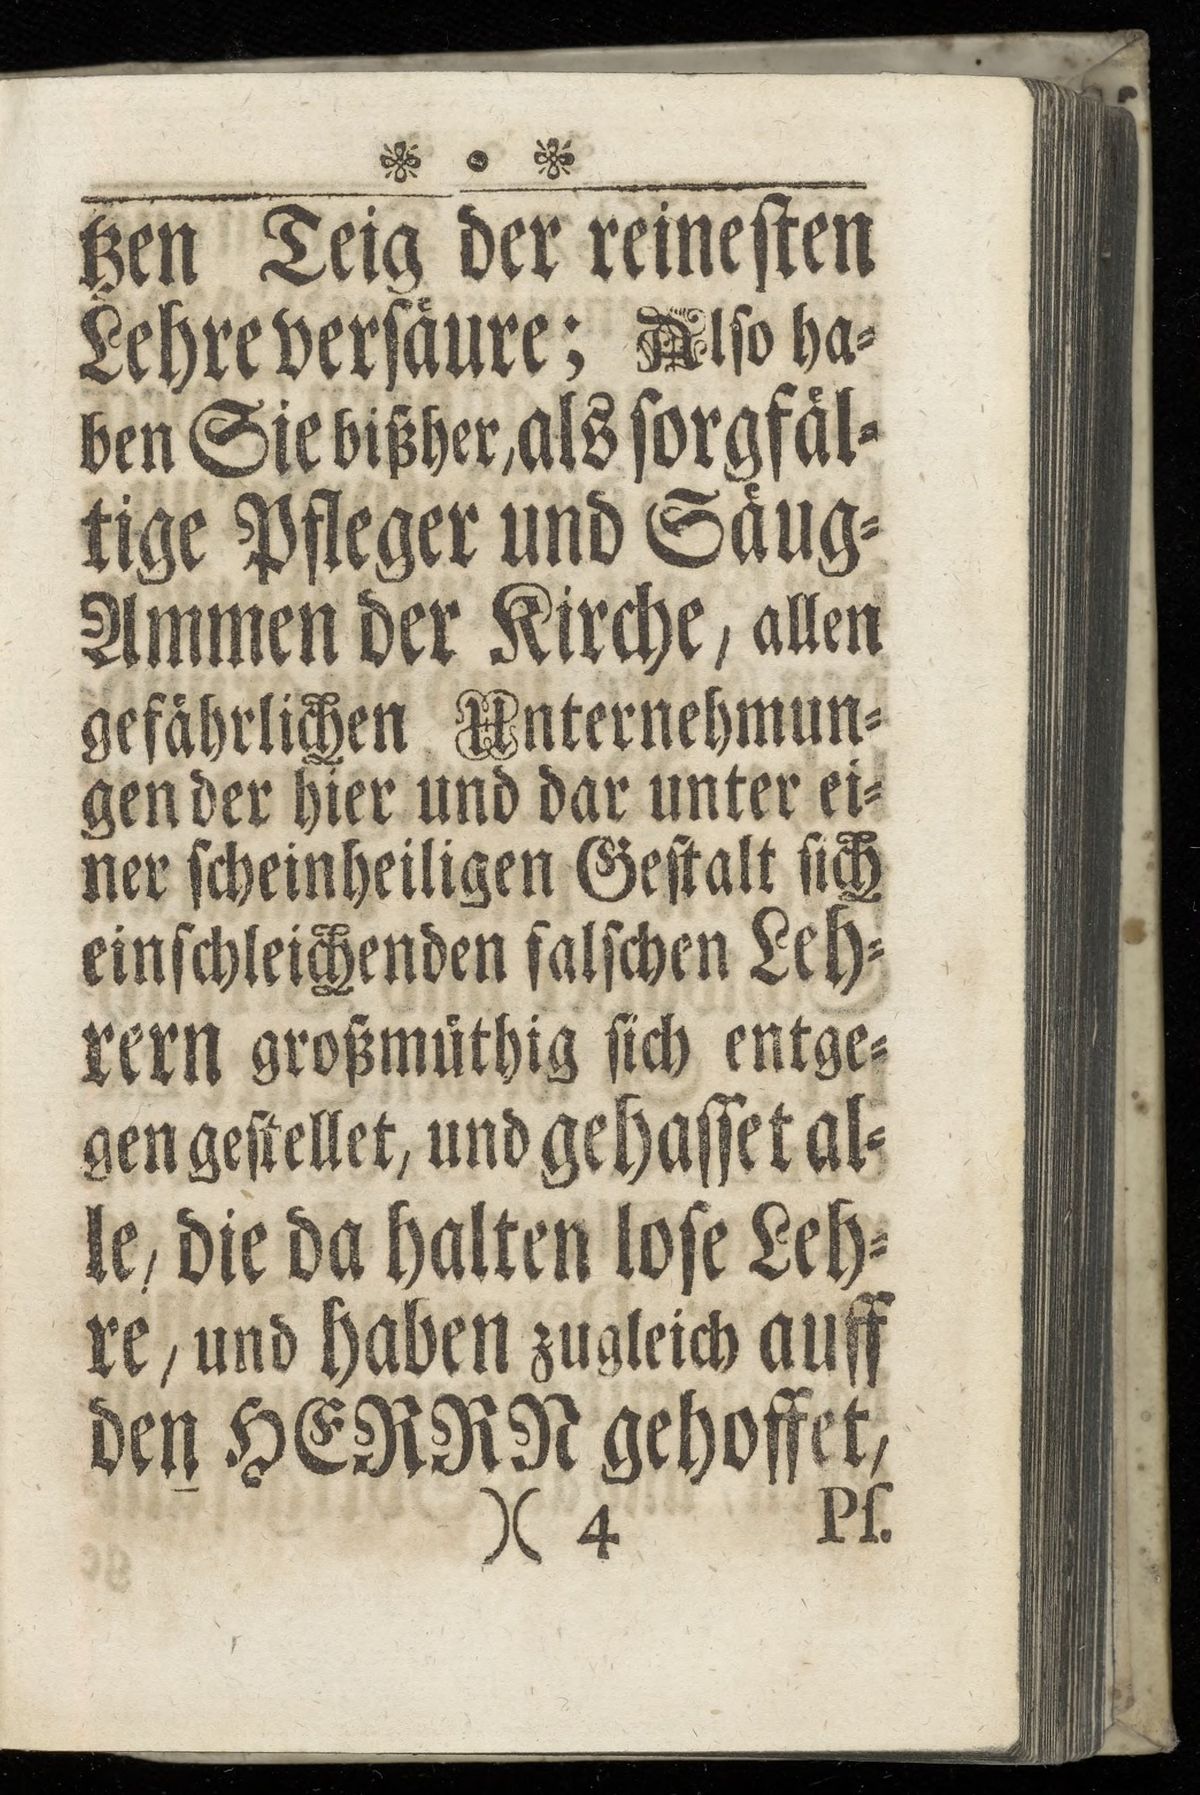 tzen Teig der reinesten
Lehre versäure; Also ha-
ben Sie bißher, als sorgfäl-
tige Pfleger und Säug-
Ammen der Kirche, allen
gefährlichen Unternehmun-
gen der hier und dar unter ei-
ner scheinheiligen Gestalt sich
einschleichenden falschen Leh-
rern großmüthig sich entge-
gen gestellet, und gehasset al-
le, die da halten lose Leh-
re, und haben zugleich auff
den HERRN gehoffet,
)( 4 Ps.